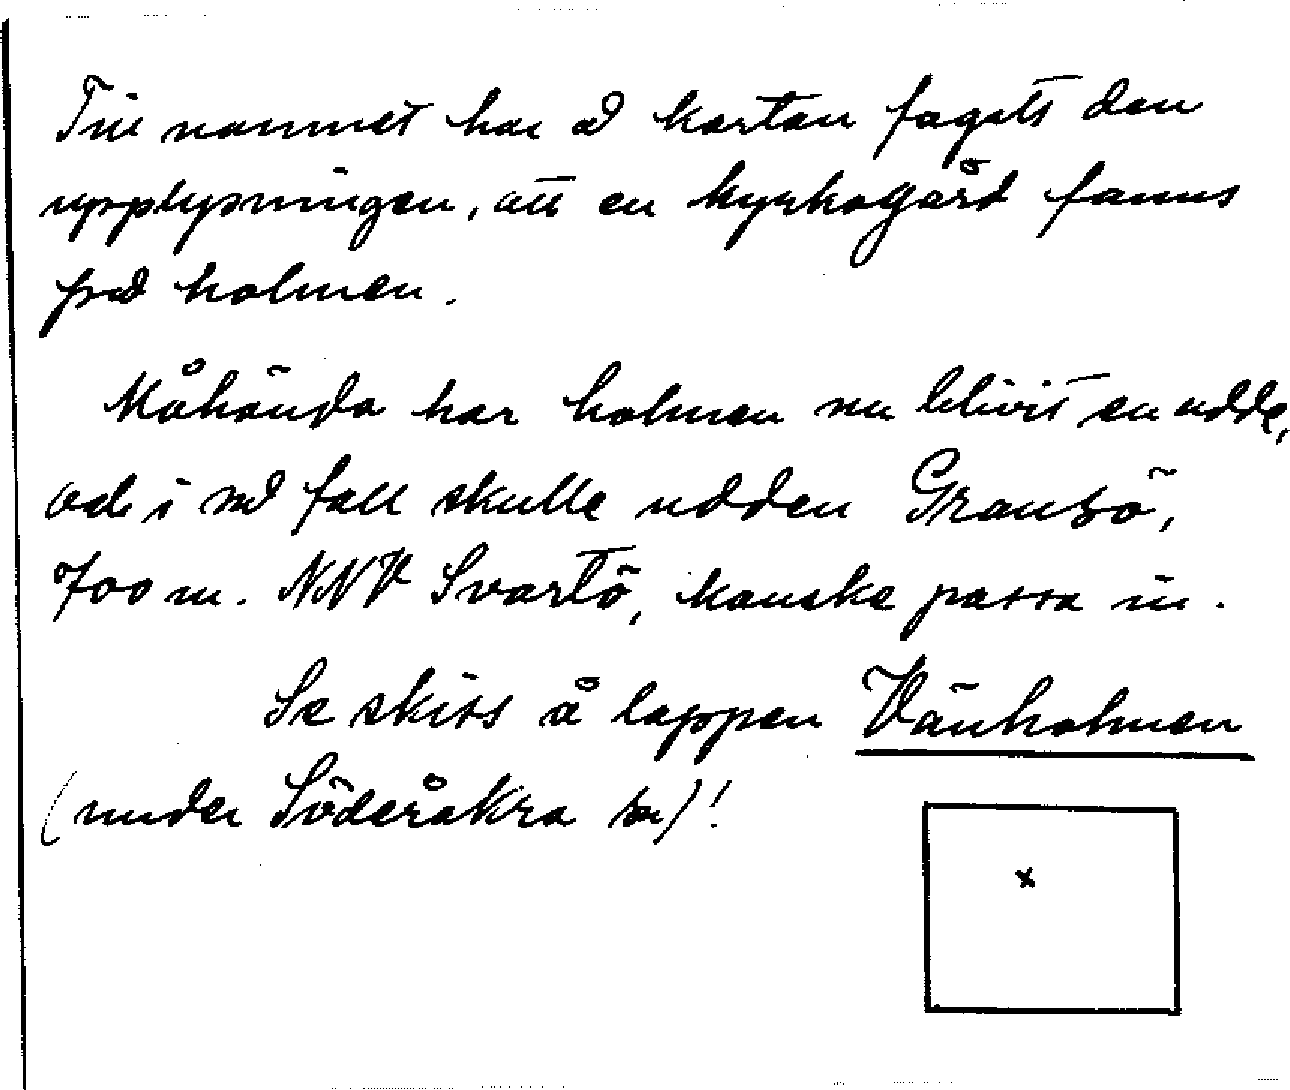 Till namnet har å kartan fogats den
upplysningen, att en kyrkogård fanns
på holmen.
Måhända har holmen nu blivit en udde,
och i så fall skulle udden Gransö,
700 m. NNV Svartö, kanske passa in.
Se skiss å lappen Vänholmen
(under Söderåkra sn)!
x